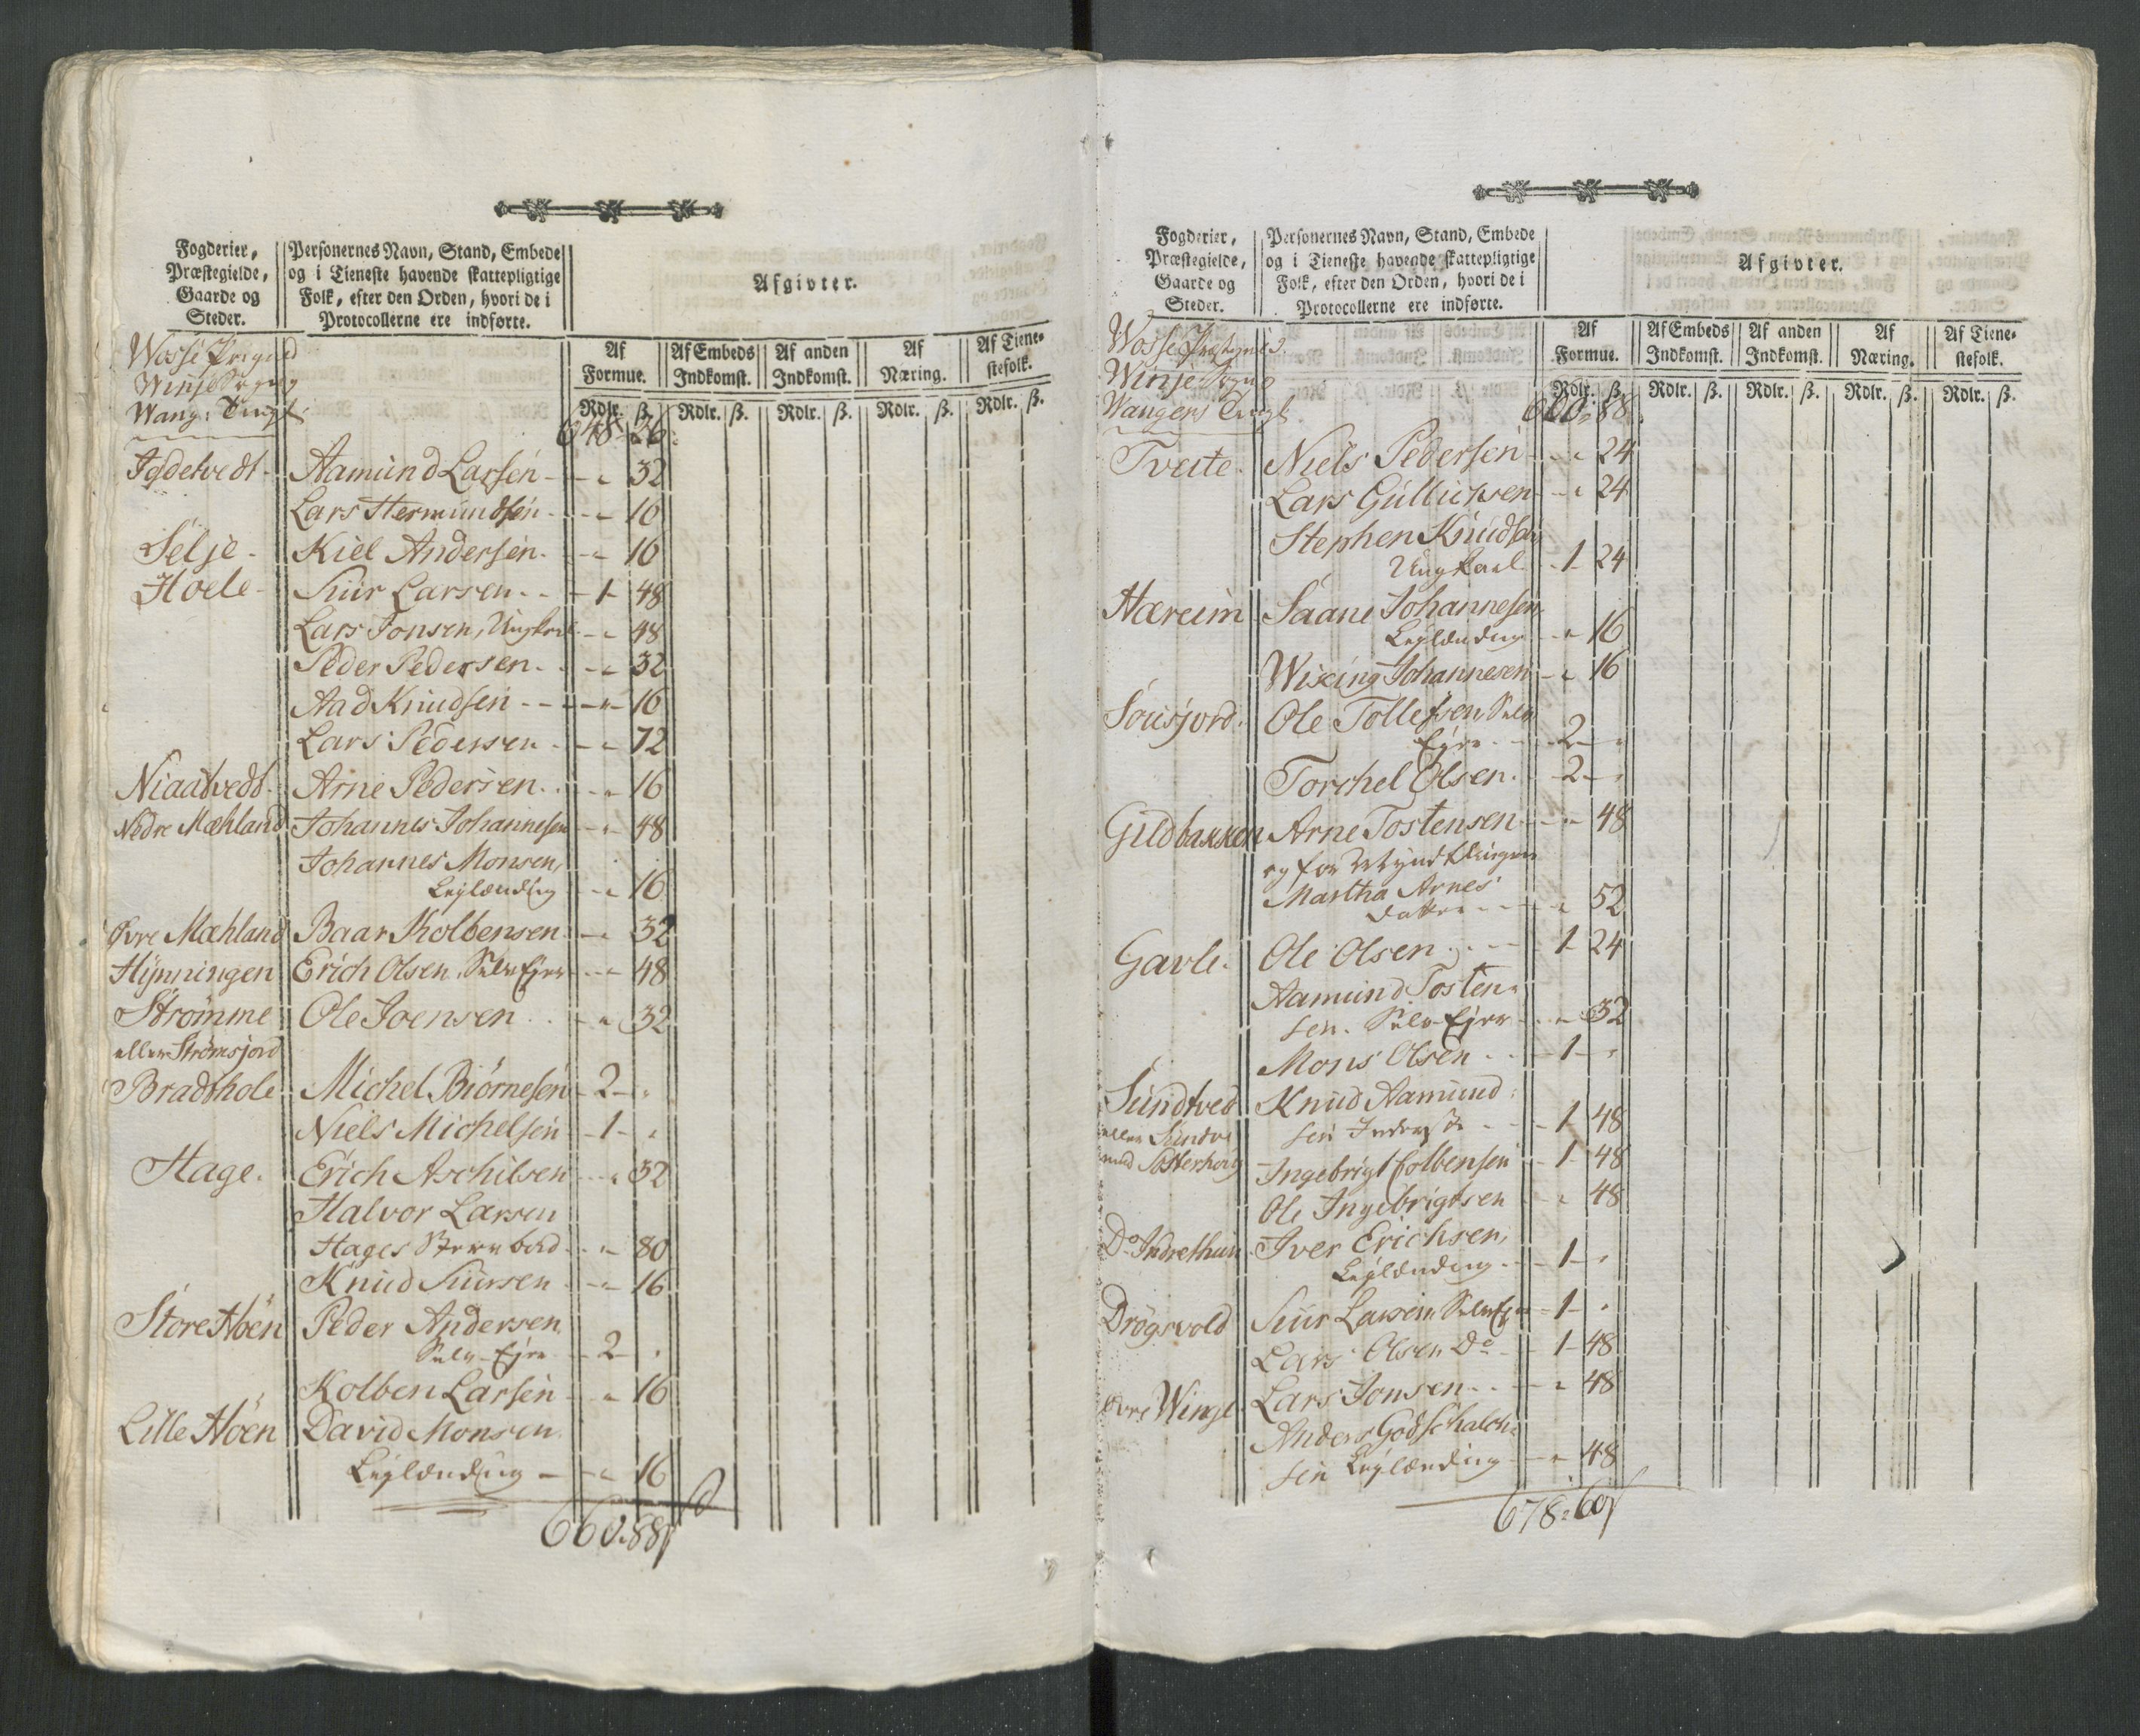 Fogderier,
Præstegielde,
Gaarde og
Steder.
Personernes Navn, Stand, Embede
og i Tieneste havende skattepligtige
Folk, efter den Orden, hvori de i
Protocollerne ere indførte.
Afgivter.
Af
Formue.
Af Embeds
Indkomst.
Af anden
Indkomst.
Af
Næring.
Af Tiene-
stefolk.
Rdlr. ß. Rdlr. ß. Rdlr. ß. Rdlr. ß. Rdlr. ß.
Wosse
Winje
Wang: Tingl:
648 26
Igdetvedt Aamund Larsen - " 32
Lars Hermundsen - " 16
Selje Kiel Andersen - " 16
Hoele Siur Larsen - 1 48
Lars Jonsen, Ungkarl - " 48
Peder Pedersen - " 32
Aad Knudsen - " 16
Lars Pedersen - " 72
Niaatvedt Arne Pedersen - " 16
Nedre Mæhland Johannes Johannesen - " 48
Johannes Monsen,
Leylænding - " 16
Øvre Mæhland Baar Kolbensen - " 32
Hynningen Erich Olsen Selv Ejer - " 48
Strømme Ole Joensen - " 32
eller Strømsjord
Bradthole Michel Biørnesen 2 - "
Niels Michelsen - 1 - "
Hage. Erich Aschilsen - " 32
Halvor Larsen
Hages - " 80
Knud Siursen - " 16
Store Høen Peder Andersen
Selv-Ejer - 2 - "
Kolben Larsen - " 16
Lille Høen David Monsen
Leylænding - " 16
660. 88
Fogderier,
Præstegielde,
Gaarde og
Steder.
Personernes Navn, Stand, Embede
og i Tieneste havende skattepligtige
Folk, efter den Orden, hvori de i
Protocollerne ere indførte.
Afgivter.
Af
Formue.
Af Embeds
Indkomst.
Af anden
Indkomst.
Af
Næring.
Af Tiene-
stefolk.
Rdlr. ß. Rdlr. ß. Rdlr. ß. Rdlr. ß. Rdlr. ß.
Wosse
Winje
Wangens Tingl:
660. 88.
Tveite Niels Pedersen - " 24
Lars Gullichsen - " 24
Stephen Knudsen
Ungkarl - 1 24
Hæreim Saane Johannesen
Leylænding - " 16
Wixing Johannesen - " 16
Sousjord. Ole Tollefsen Selv
Ejer - 2 - "
Torchel Olsen. 2 - "
Gildbakken Arne Tostensen - " 48
og for Myndtlingen
Martha Arnes
datter - " 52
Gavle. Ole Olsen - 1 24
Aamund Tosten-
sen. Selv-Ejer - " 32
Mons Olsen - 1 - "
Sundtved Knud Aamund-
eller Sundve sen Inderste - 1 48
med Sosterhoug Ingebrigt Colbensen - 1 48
Ole Ingebrigtsen - " 48
Do Indrethun Iver Erichsen,
Leylænding - 1 - "
Drøgsvold Siur Larsen Selv Ejer - 1 - "
Lars Olsen Do - 1 48
Øvre Winge Lars Jonsen - " 48
Anders Godschalch-
sen Leylænding - " 48
678. 60